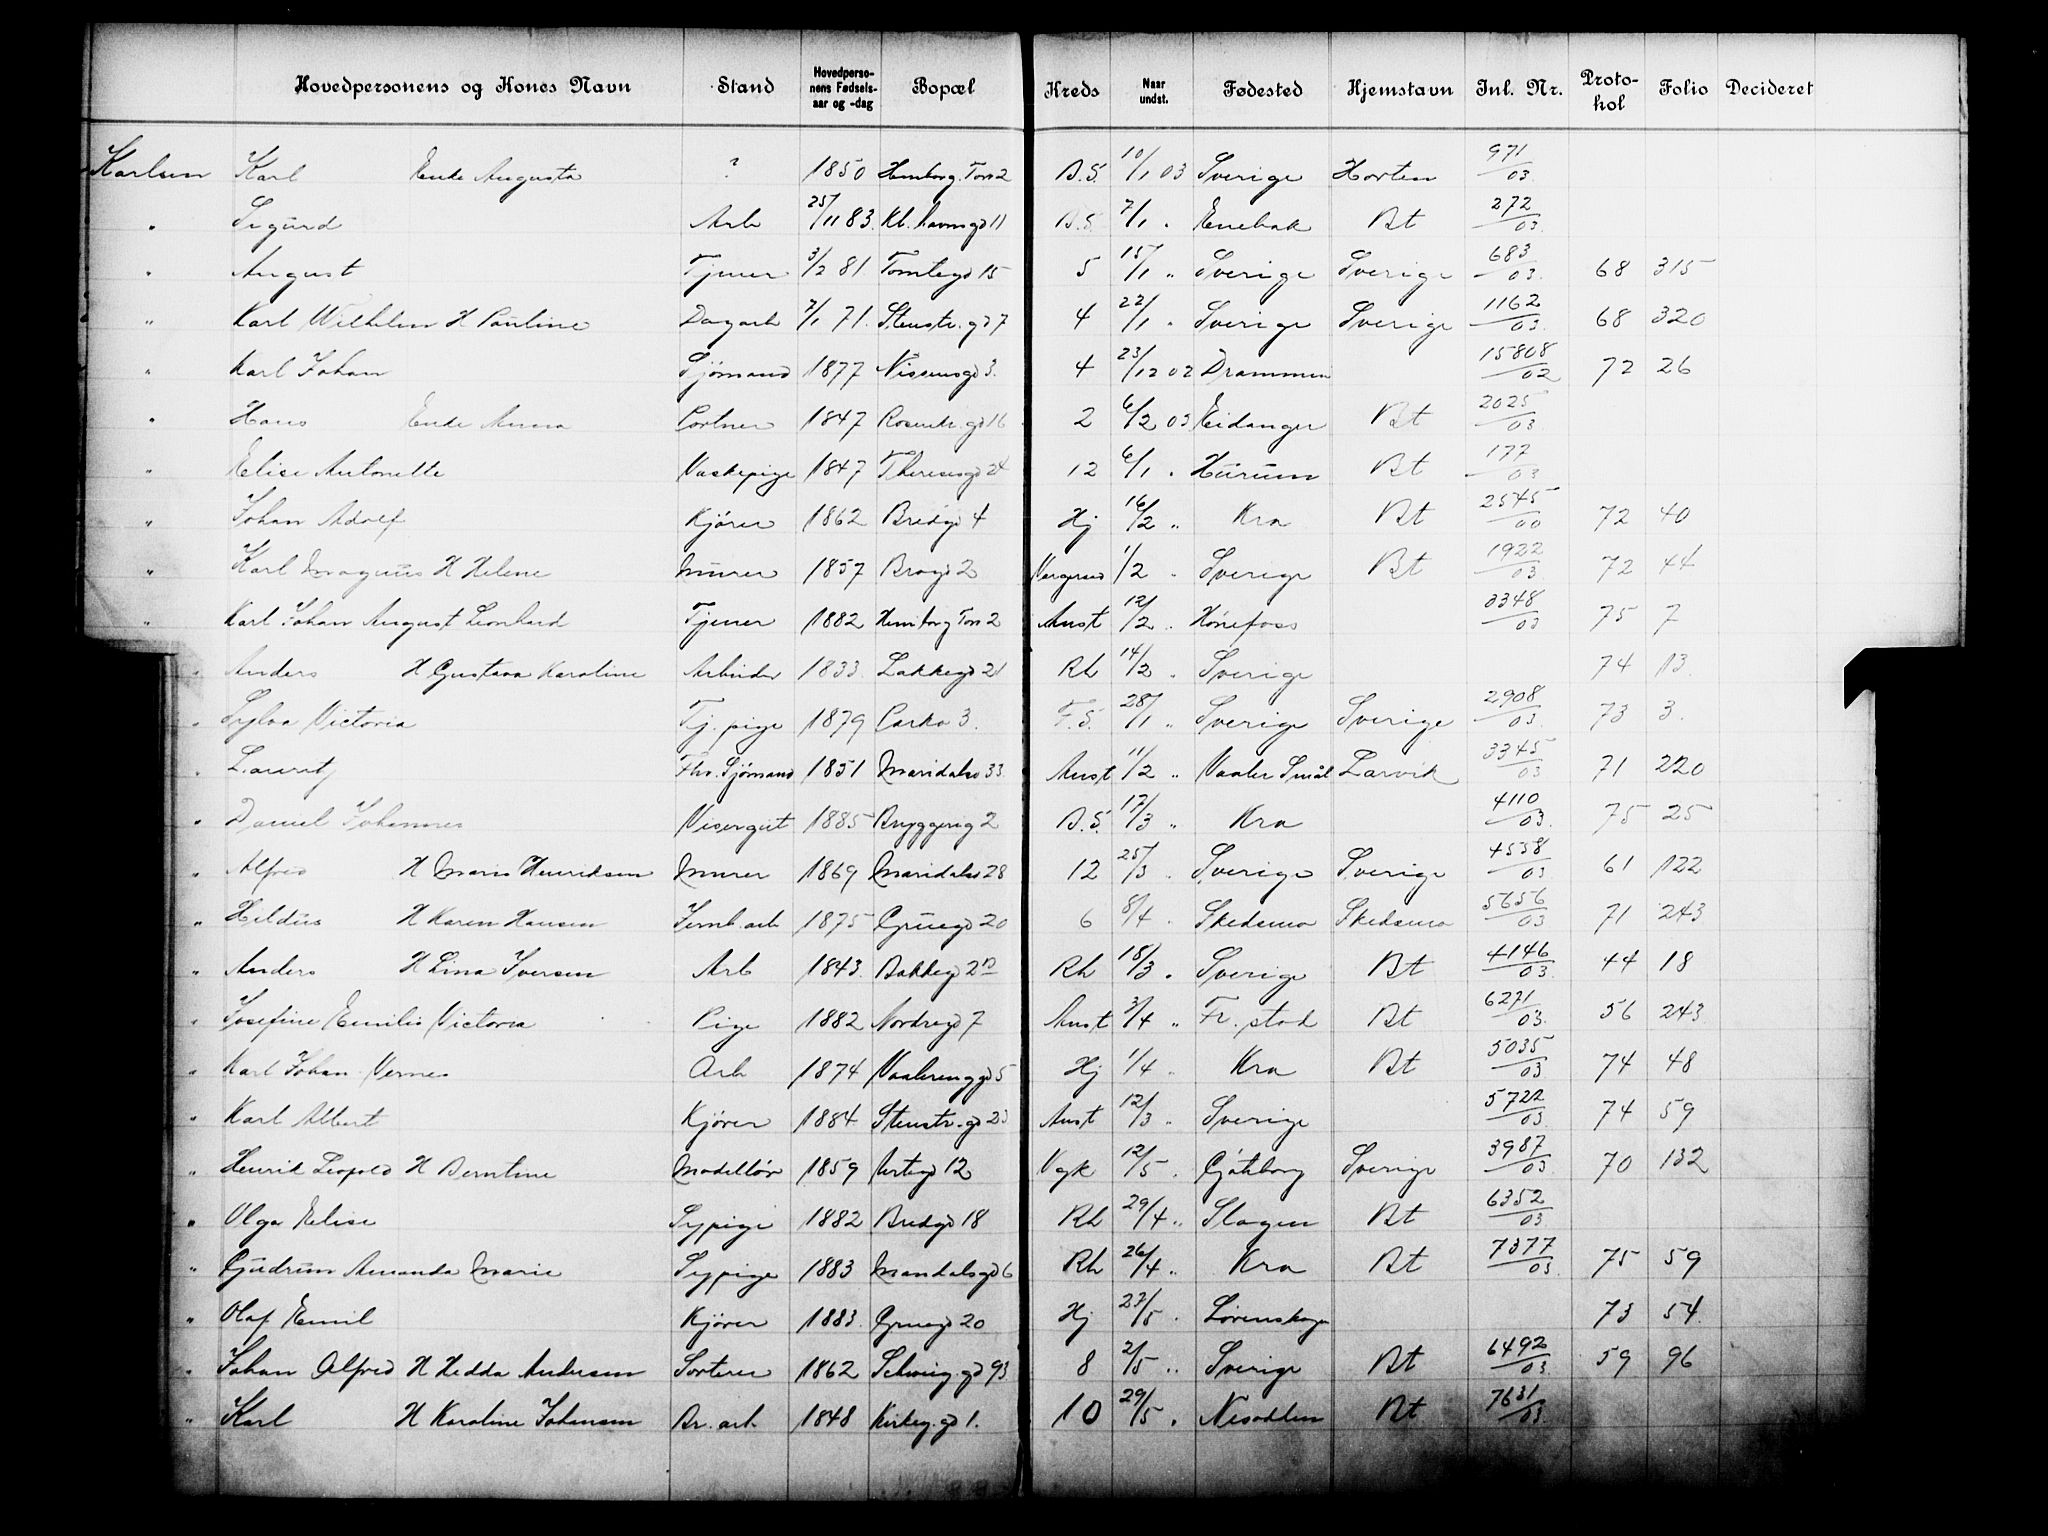 Hovedpersonens og Kones Navn Stand Hovedperso-nens Fødsels-aar og -dag Bopæl Kreds Naar undst. Fødested Hjemstavn Inl. Nr. Proto-kol Folio Decideret
Karlsen Karl Enke Augusta ? 1850 Hemborg. Torv 2 B.S. 10/1 03 Sverige Horten 971/03
" Sigurd Arb 25/11 83. Kb. havnsgd 11 B.S. 7/1 " Enebak Bt 272/03
" August Tjener 3/2 81 Tomtegd 15 5 15/1 " Sverige Sverige 683/03 68 315
" Karl Wilhelm H Pauline Dagarb 7/1 71. Stenstr. gd 7 4 22/1 " Sverige Sverige 1162/03 68 320
" Karl Johan Sjømand 1877 Nissensgd 3. 4 23/12 02 Drammen 15808/02 72 26
" Hans Enke Anna Portner 1847 Rosenkr. gd 16 2 6/2 03 Eidanger Bt 2025/03
" Elise Antonette Vaskepige 1847 Theresesgd 24 12 6/1 " Hurum Bt 177/03
" Johan Adolf Kjører 1862 Bredgd 4 Hj 16/2 " Kra Bt 2545/00 72 40
" Karl Magnus H Helene Murer 1857 Brogd 2 1/2 " Sverige Bt 1922/03 72 44
" Karl Johan August Leonhard Tjener 1882 Hemborg Torv 2 Anst 12/2 " Hønefoss 3348/03 75 7
" Anders H Gustava Karoline Arbeider 1833 Lakkegd 21 Rh 14/2 " Sverige 74 13.
" Sylva Victoria Tj. pige 1879 Parkv 3. F.S. 28/1 " Sverige Sverige 2908/03 73 3.
" Lauritz Fhv. Sjømand 1851 Maridalsv 33 Anst 11/2 " Vaaler Smål Larvik 3345/03 71 220
" Daniel Johannes Visergut 1885 Bryggerig 2 B.S. 17/3 " Kra 4110/03. 75 25
" Alfred H Marie Henriksen Murer 1869 Maridalsv 28 12 25/3 " Sverige Sverige 4538/03 61 122
" Hildus H Karen Hansen Jernb. arb 1875 Gruegd 20 6 8/4 " Skedsmo Skedsmo 5656/03 71 243
" Anders H Lina Iversen Arb 1843. Bakkegd 2 Rh 18/3 " Sverige Bt 4146/03. 44 18
" Josefine Emilie Victoria Pige 1882 Nordregd 7 Anst 3/4 " Fr. stad Bt 6271/03. 56 243
" Karl Johan Vernes Arb 1874 Vaalerenggd 5 Hj 1/4 " Kra Bt 5035/03 74 48
" Karl Albert Kjører 1884 Stenstr. gd 23 Anst 12/3 " Sverige 5722/03. 74 59
" Henrik Leopold H Berntine Modellør 1859 12 Vgk 12/5 " Gøteborg Sverige 3987/03. 70 132
" Olga Elise Sypige 1882 Bredgd 18 Rh 29/4 " Slagen Bt 6352/03
" Gudrun Amanda Marie Sypige 1883 Mandalsgd 6 Rh 26/4 " Kra Bt 7377/03 75 59
" Olaf Emil Kjører 1883. Gruegd 20 Hj 27/5 " Lørenskogen 73 54.
" Johan Alfred H Hedda Andersen Sorterer 1862 Schweig. gd 93 8 2/5 " Sverige Bt 6492/03 59 96
" Karl H Karoline Johansen Br. arb 1848 Kirkeg. gd 1. 10 29/5 " Nesodden Bt 7631/03.